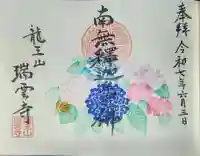 奉拝 令和七年六月三日
南無釋迦牟尼佛
龍王山
瑞雲寺